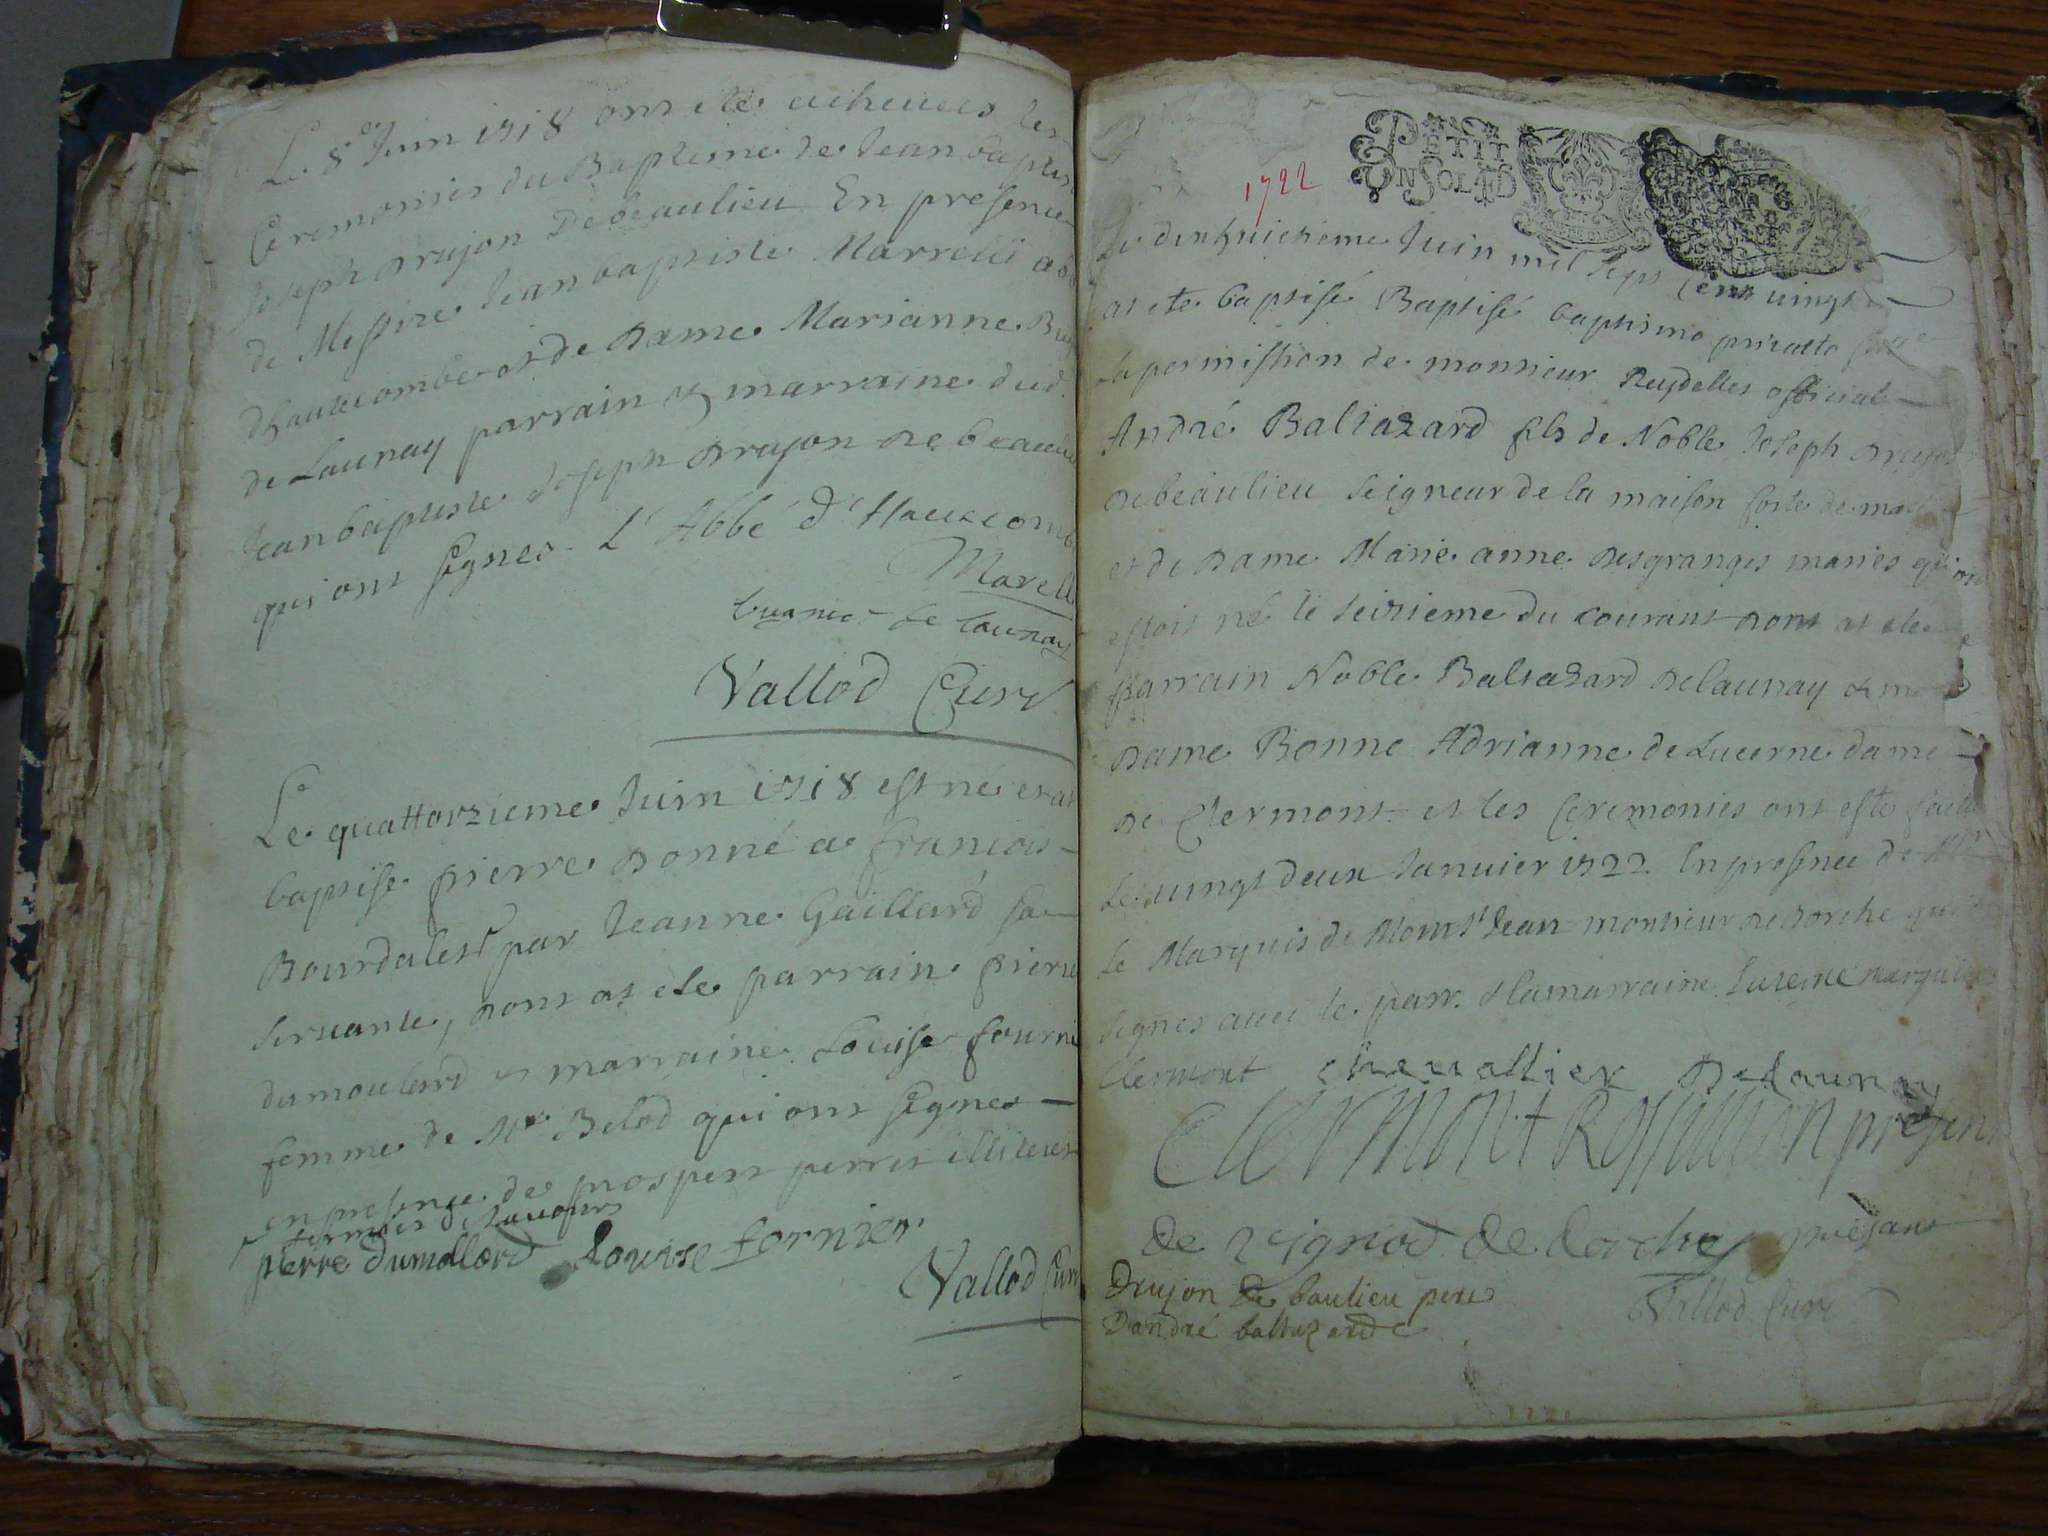 Le 8e Juin 1718 ont ete acheuees les
Ceremonies du Bapteme de Jean baptis
Joseph Drujon Debeaulieu En presence
de Messire Jean baptiste Marrelli ab
dhautecombe et de Dame Marianne
de Launay parrain et marraine dud.
Jean baptiste Joseph Drujon de beaulieu
qui ont signes. L'Abbé d'Hautecomb
Marelli
de Launay
Vallod Curé
Le quattorzieme Juin 1718 est né et at
baptisé pierre donné a françois
Bourdalest par Jeanne Gaillard sa
seruante, dont at ete parrain pierre
dumoulard et marraine Louise fourni
femme de Mre Belod qui ont signes
en presence de prosper perret illiteres
pierre dumollard Louise fornier
Vallod Cure
PETIT
UN SOL 4 D
1722
Le dixhuictieme Juin mil sept cent uingt
at ete baptisé Baptisé baptismo priuatto
la permission de monsieur Reydellet official
André Baltazard fils de Noble Joseph Drujon
Debeaulieu seigneur de la maison forte de
et de Dame Marie anne Desgranges maries qui
estoit né le seizieme du courant dont at ete
parrain Noble Baltazard Delaunay et
Dame Bonne Adrianne de Lucerne dame
de Clermont et les Ceremonies ont este faite
Le uingt deux Januier 1722 En presence de Mr
le Marquis de Mont St Jean monsieur de Dorche qui
signes auec le parr. et la marraine Luserne marquise
Clermont cheuallier Delaunay
Clermont Rossillion present
de Vignod de dorches présant
Drujon de baulieu pere
Dandré baltazard
Vallod Cure